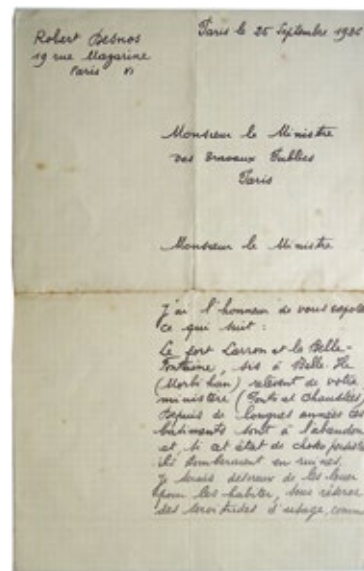 Robert Desnos
19 rue Mazarine
Paris VI
Paris le 25 Septembre 1936
Monsieur le Ministre
des Travaux Publics
Paris
Monsieur le Ministre
J'ai l'honneur de vous expose
ce qui suit :
Le fort Larron et la Belle-
Fontaine, sis à Belle-Ile
(Morbihan) relèvent de votre
ministère (Ponts et Chaussées)
depuis de longues années ces
bâtiments sont à l'abandon
et si cet état de choses persiste
ils tomberont en ruines.
Je serais désireux de les louer
pour les habiter, sous réserve
des servitudes d'usage, comm